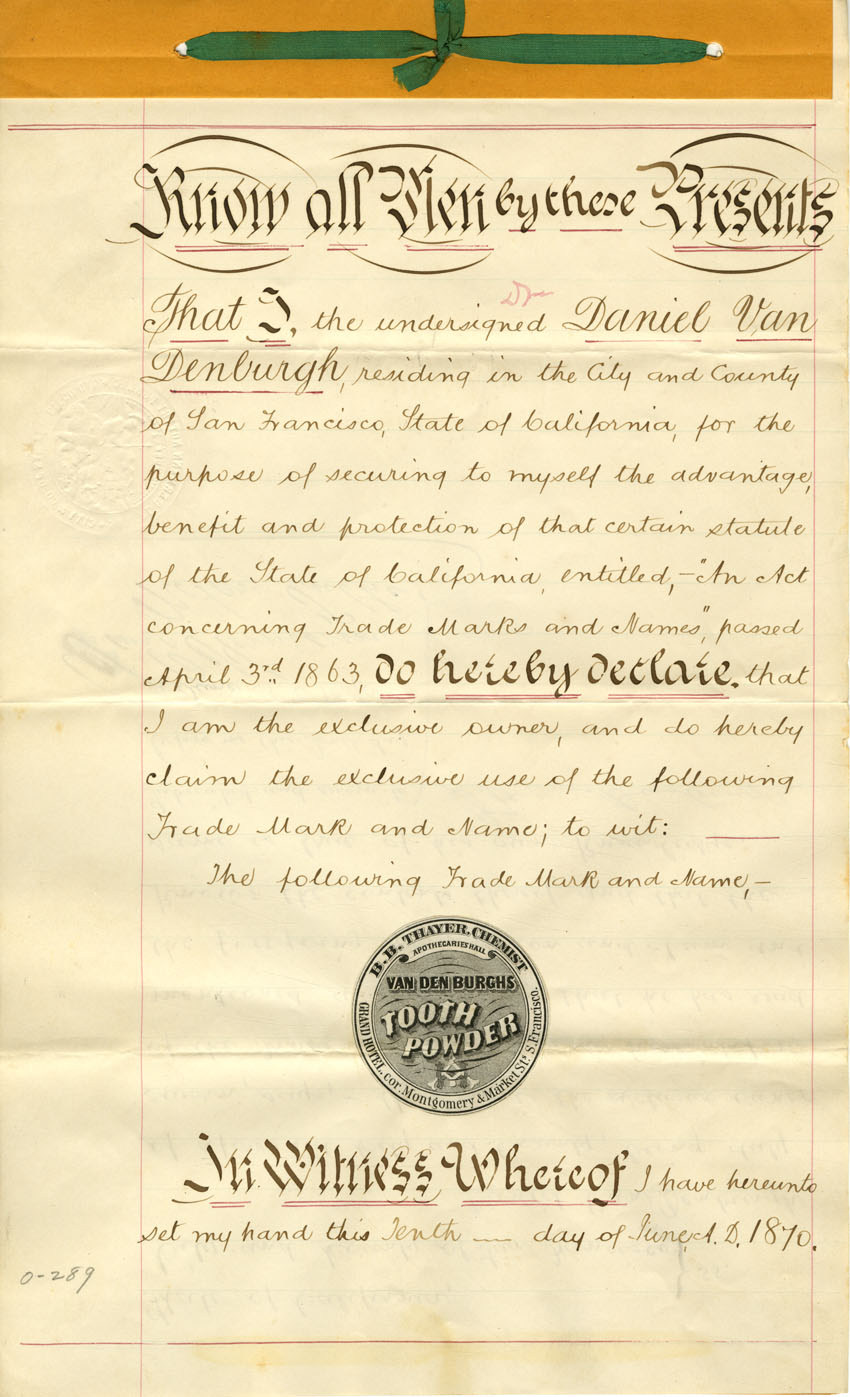 Know all Men by these Presents
Dr
That I, the undersigned Daniel Van
Denburgh, residing in the City and County
of San Francisco, State of California, for the
purpose of securing to myself the advantage,
benefit and protection of that certain statute
of the State of California, entitled,-"An Act
concerning Trade Marks and Names", passed
April 3rd. 1863, do hereby declare, that
I am the exclusive owner, and do hereby
claim the exclusive use of the following
Trade Mark and Name; to wit: —
The following Trade Mark and Name,-
B.B. THAYER, CHEMIST
APOTHECARIES HALL
VAN DEN BURGHS
TOOTH
POWDER
GRAND HOTEL, cor. Montgomery & Market Sts. S. Francisco.
In Witness Whereof I have hereunto
set my hand this Tenth — day of June, A. D. 1870.
0-289